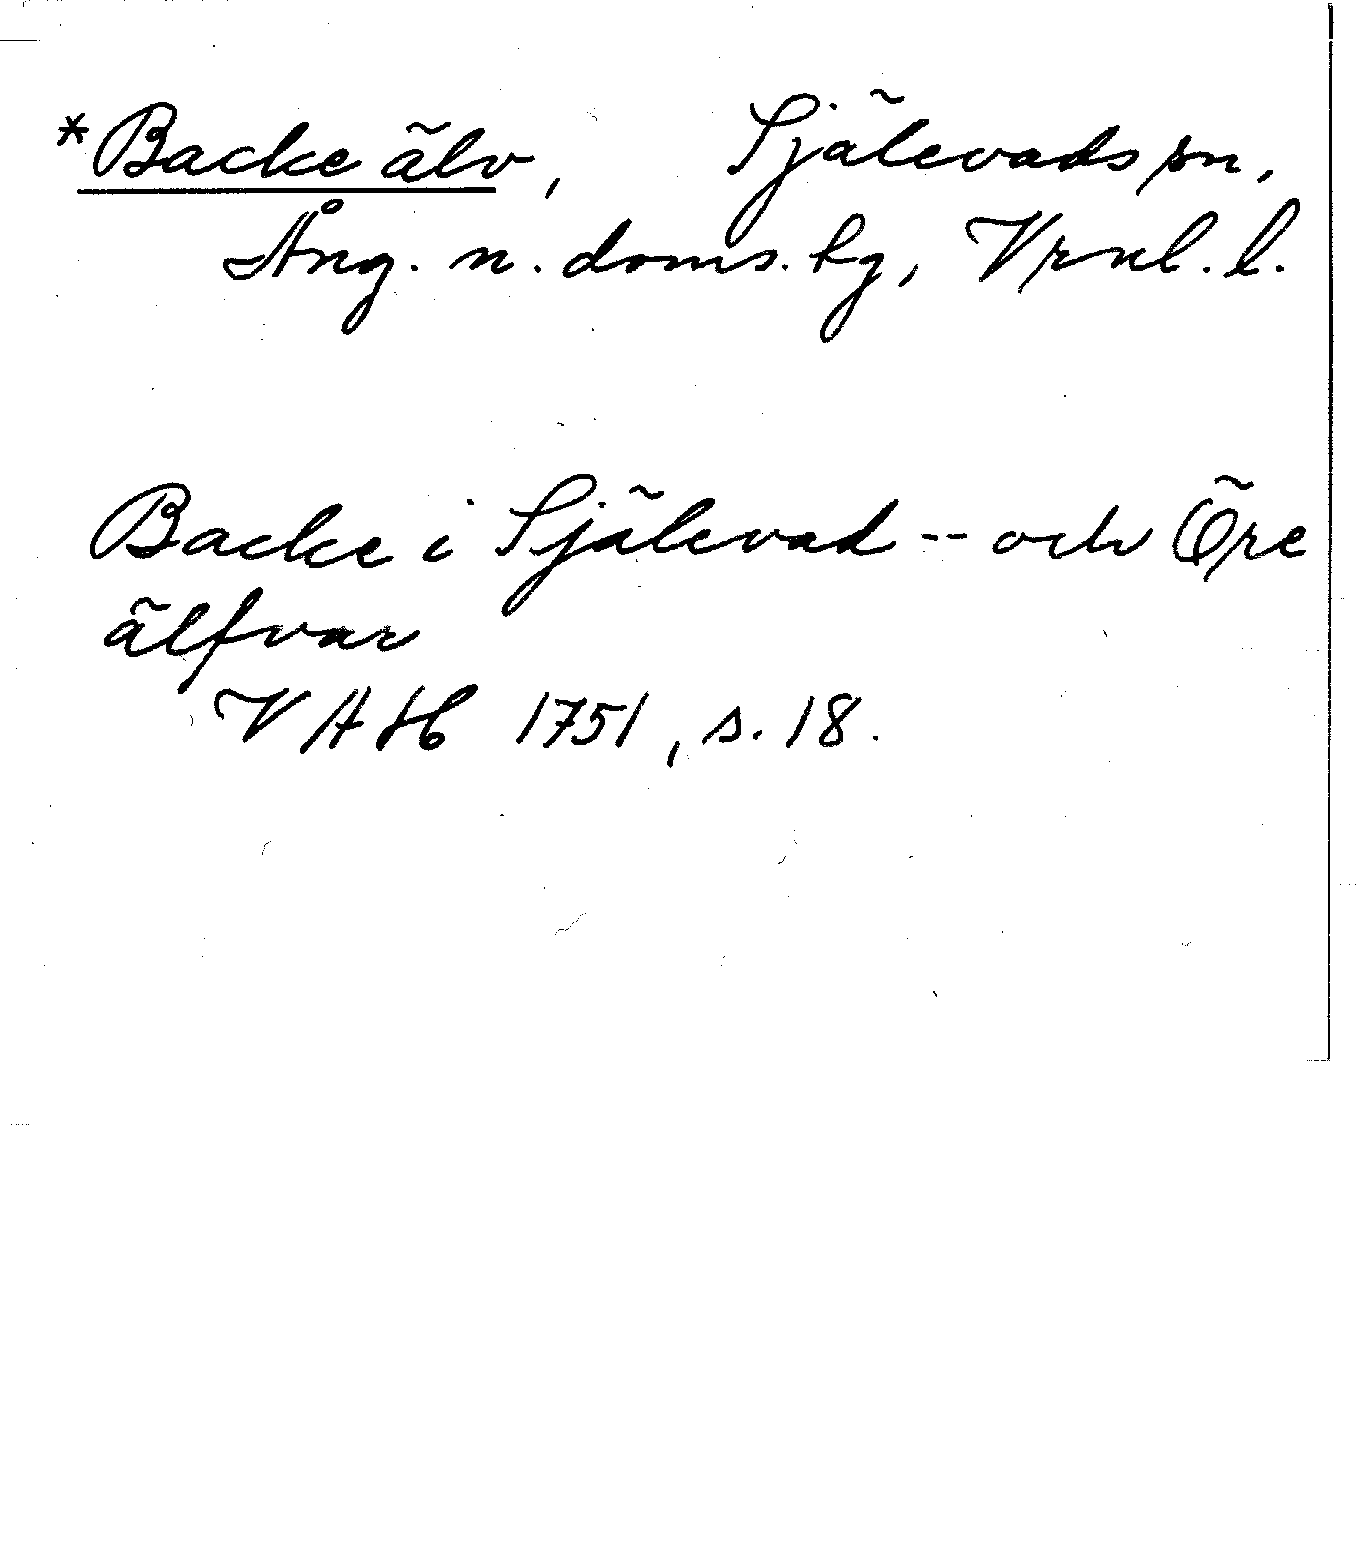 *Backe älv, Själevads sn,
Ång. n. doms. hg, Vrnl. l.
Backe i Själevad -- och Öre
älfvar
VAH 1751, s. 18.